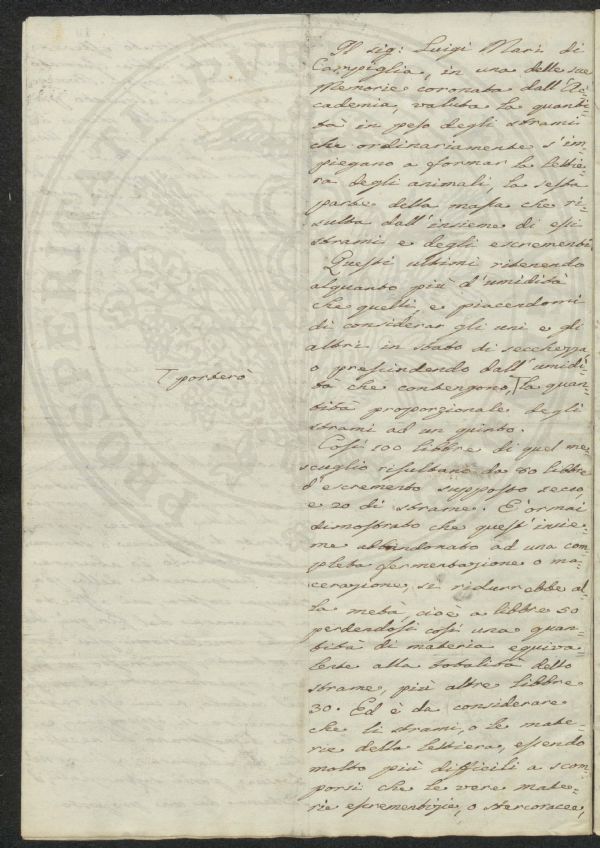 Il sig: Luigi Mari di
Campiglia, in una delle sue
Memorie coronata dall'Ac=
cademia, valuta la quanti=
tà in peso degli strami
che ordinariamente s'im=
piegano a formar la lettie=
ra degli animali, la sesta
parte della massa che ri=
sulta dall'insieme di essi
strami e degli escrementi.
Questi ultimi ritenendo
alquanto più d'umidità
che quelli, e piacendomi
di considerar gli uni e gli
altri in stato di secchezza
o prescindendo dall'umidi=
tà che contengono, la quan=
tità proporzionale degli
strami ad un quinto.
Così 100 libbre di quel me=
scuglio risultano da 80 libbre
d'escremento supposto secco,
e 20 di strame. È ormai
dimostrato che quest'insie=
me abbandonato ad una com=
pleta fermentazione o ma=
cerazione, si ridurrebbe al=
la metà, cioè a libbre 50
perdendosi così una quan=
tità di materia equiva=
lente alla totalità dello
strame, più altre libbre
30. Ed è da considerare
che li strami, o le mate=
rie della lettiera, essendo
molto più difficili a scom=
porsi che le vere mate=
rie escrementizie, o stercoracee,
porterò
PROSPERITATI PVB